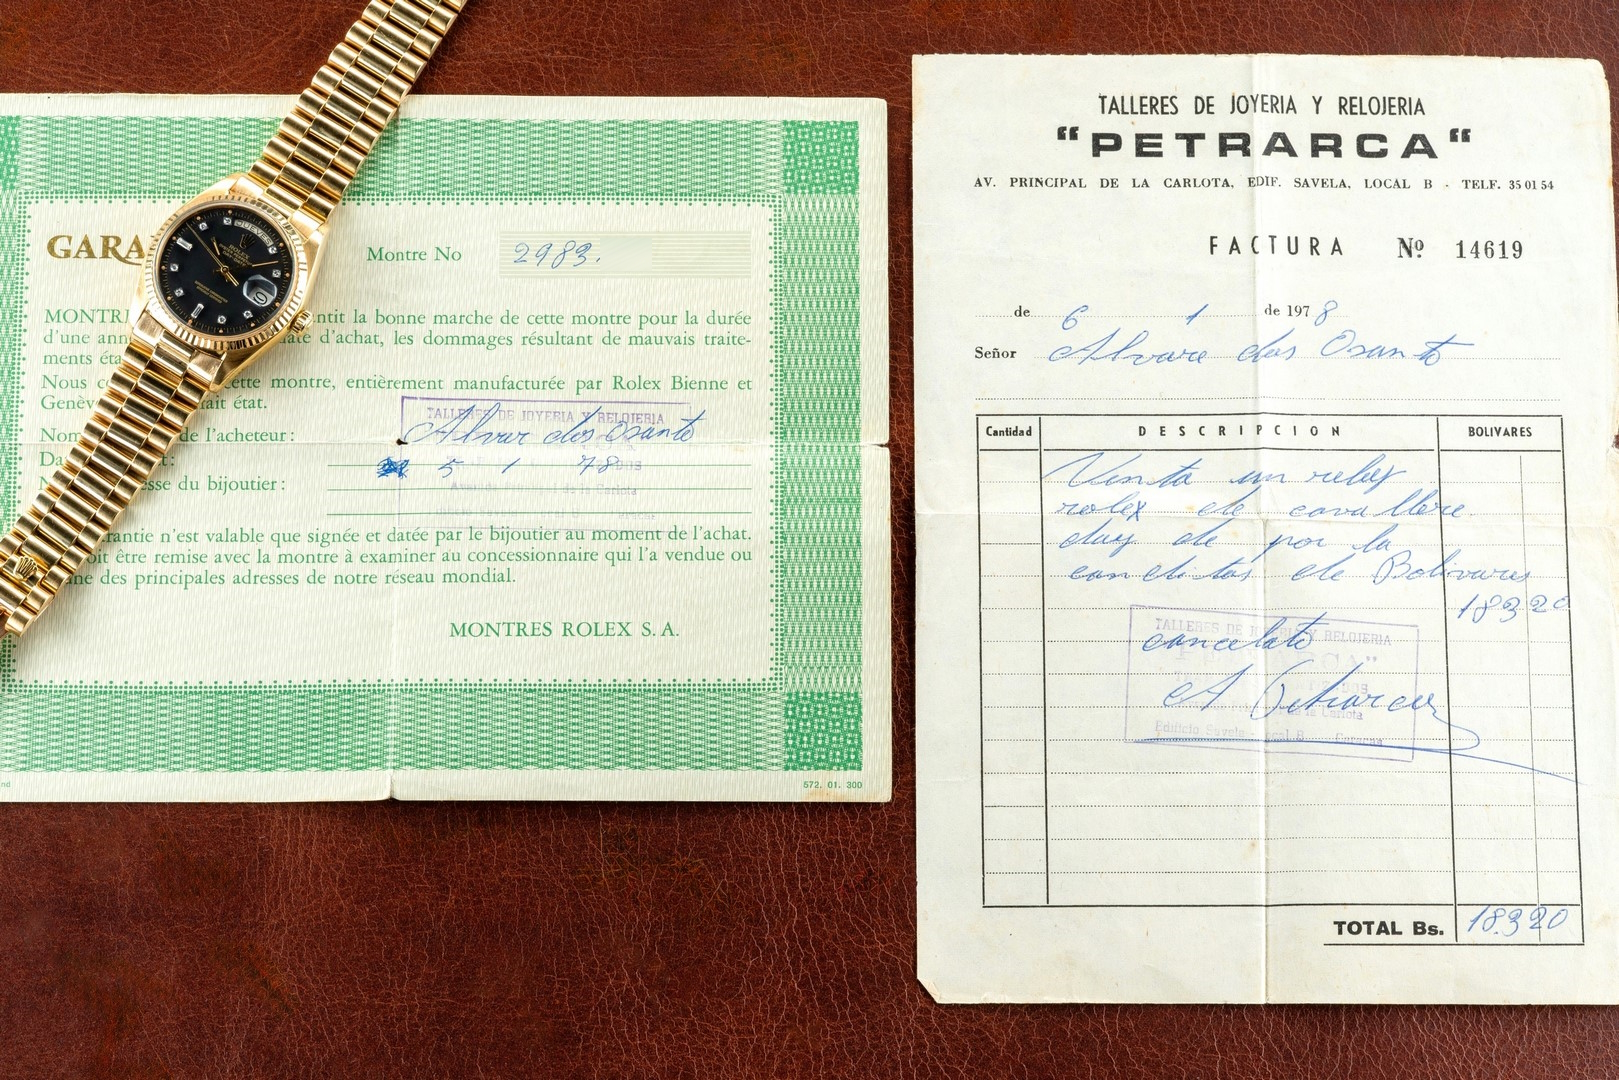 GARA
Montre No 2983.
MONTRE ntit la bonne marche de cette montre pour la durée
d'une ann ate d'achat, les dommages résultant de mauvais traite-
ments éta
Nous c cette montre, entièrement manufacturée par Rolex Bienne et
Genèv fait état.
Nom de l'acheteur: Alvar dos Osanto
Da t: 5 1 78
N esse du bijoutier:
TALLERES DE JOYERIA Y RELOJERIA
Avenida Principal de la Carlota
arantie n'est valable que signée et datée par le bijoutier au moment de l'achat.
oit être remise avec la montre à examiner au concessionnaire qui l'a vendue ou
une des principales adresses de notre réseau mondial.
MONTRES ROLEX S. A.
nd
572. 01. 300
JUEVES
ROLEX
TALLERES DE JOYERIA Y RELOJERIA
“PETRARCA“
AV. PRINCIPAL DE LA CARLOTA, EDIF. SAVELA, LOCAL B - TELF. 35 01 54
FACTURA Nº 14619
de 6 1 de 1978
Señor Alvare dos Osanto
Cantidad DESCRIPCION BOLIVARES
Venta un reloj
rolex de cavallere
day de por la
canditas de Bolivares
18320
cancelato
A. Petrarca
TALLERES DE JOYERIA Y RELOJERIA
Edificio Savela - Local B Caracas
TOTAL Bs. 18.320